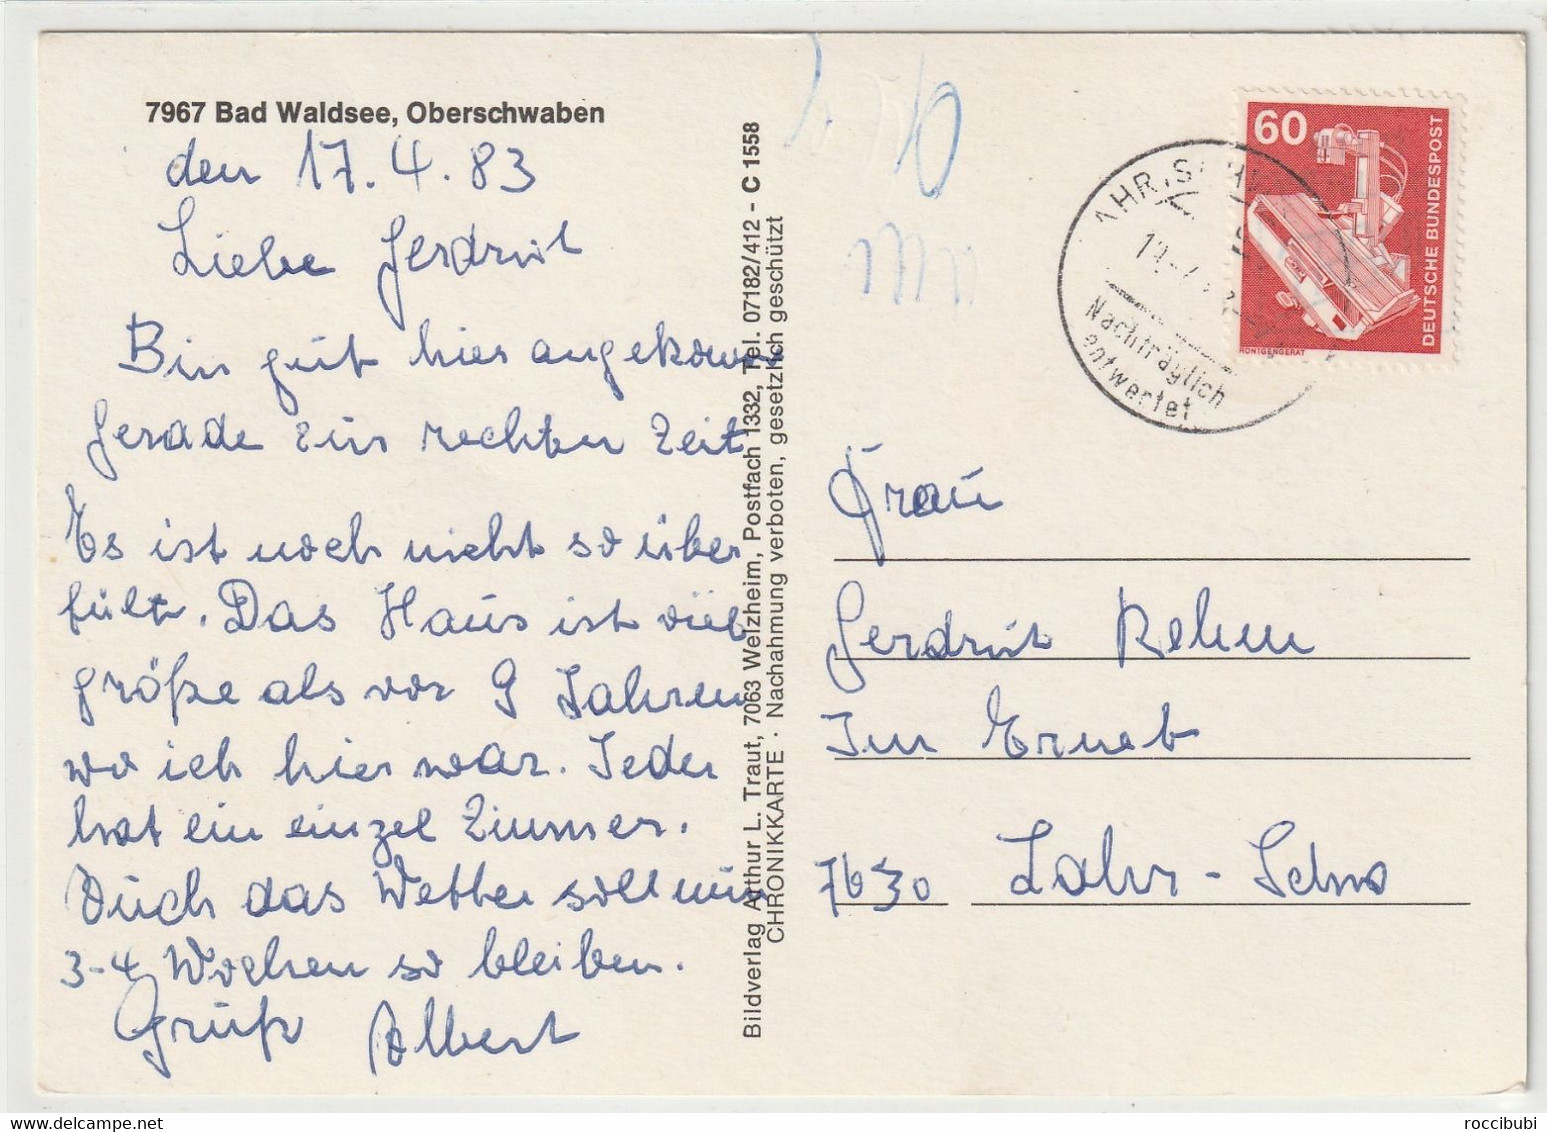 7967 Bad Waldsee, Oberschwaben
den 17.4.83
Liebe Gerdrut
Bin gut hier angekomm
gerade zur rechten Zeit
Es ist noch nicht so über
füllt. Das Haus ist viel
größe als vor 9 Jahren
wo ich hier war. Jeder
hat ein einzel Zimmer.
Auch das Wetter soll nur
3-4 Wochen so bleiben.
Gruß Albert
Bildverlag Arthur L. Traut, 7063 Welzheim, Postfach 1332, Tel. 07182/412 - C 1558
CHRONIKKARTE · Nachahmung verboten, gesetzlich geschützt
60
DEUTSCHE BUNDESPOST
RÖNTGENGERÄT
AHR, SCHW
Nachträglich
entwertet
Frau
Gerdrut Rehm
Im Ernet
7630 Lahr-Schw
roccibubi